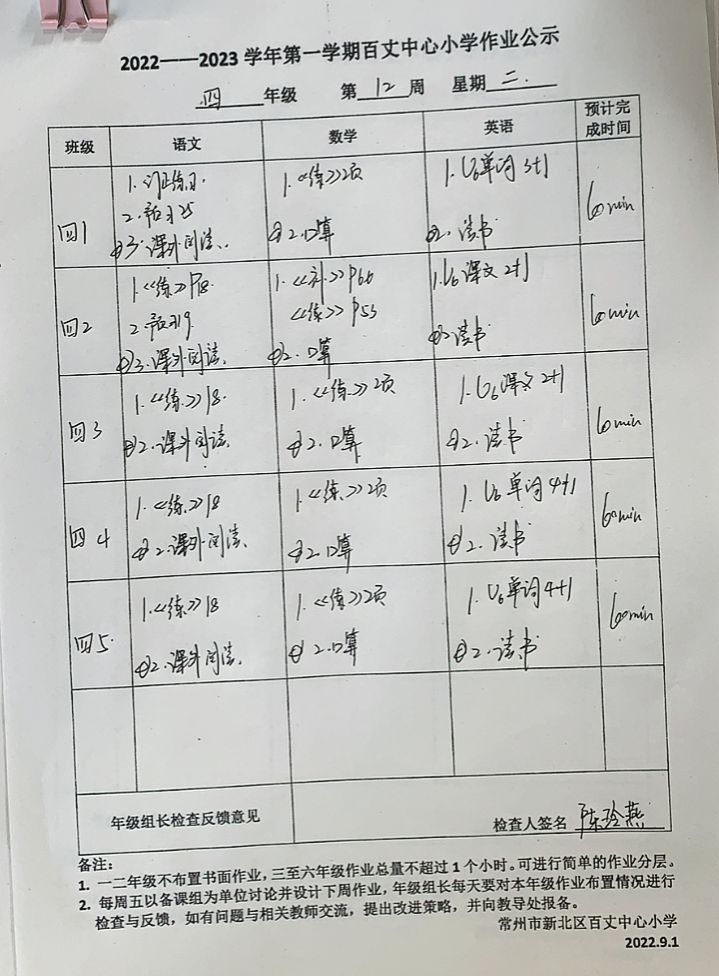 2022——2023 学年第一学期百丈中心小学作业公示
四 年级 第 12 周 星期 二.
班级 语文 数学 英语 预计完成时间
四1
1. 订正练习.
2. 预习25
3. 课外阅读.
1.《练》2页
2.口算
1. U6单词 3+1
2. 读书
60min
四2
1.《练》P18.
2. 预习19
3. 课外阅读.
1.《补》P66
《练》P53
2. 口算
1.U6课文 2+1
2读书
60min
四3
1.《练》18.
2. 课外阅读.
1.《练》2页
2. 口算
1. U6课文 2+1
2. 读书
60min
四4
1.《练》18
2. 课外阅读.
1《练》2页
2. 口算
1. U6 单词 4+1
2. 读书
60min
四5.
1.《练》18
2. 课外阅读.
1.《练》2页
2.口算
1. U6单词4+1
2. 读书
60min
年级组长检查反馈意见
检查人签名 陈玲燕
备注:
1. 一二年级不布置书面作业，三至六年级作业总量不超过 1 个小时。可进行简单的作业分层。
2. 每周五以备课组为单位讨论并设计下周作业，年级组长每天要对本年级作业布置情况进行
检查与反馈，如有问题与相关教师交流，提出改进策略，并向教导处报备。
常州市新北区百丈中心小学
2022.9.1